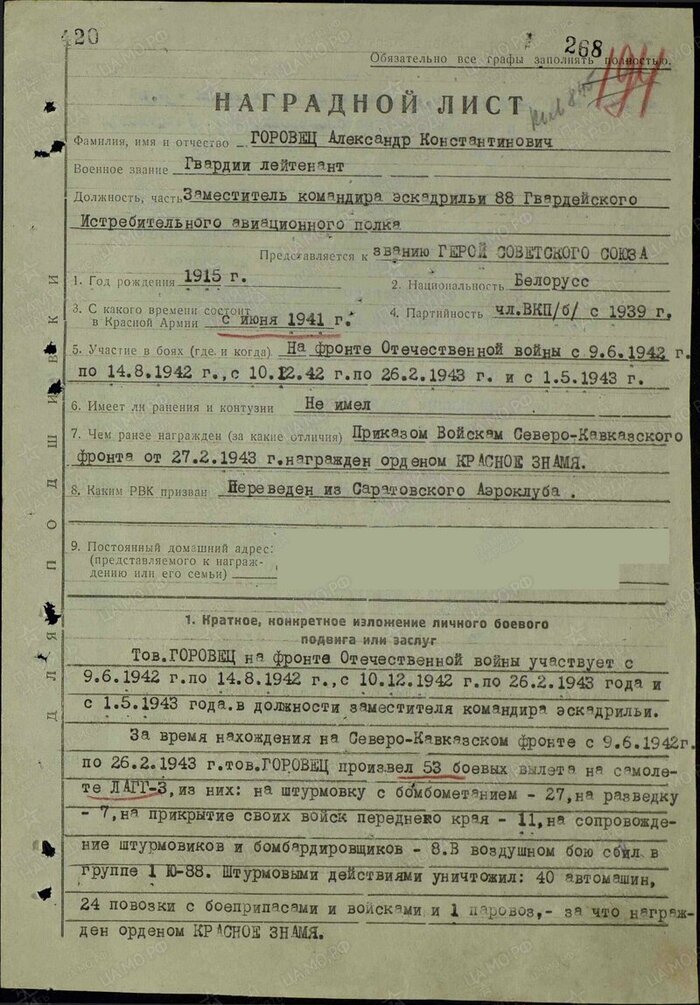 420
268
194
Обязательно все графы заполнять полностью.
НАГРАДНОЙ ЛИСТ
Фамилия, имя и отчество ГОРОВЕЦ Александр Константинович
Военное звание Гвардии лейтенант
Должность, часть Заместитель командира эскадрильи 88 Гвардейского
Истребительного авиационного полка
Представляется к званию ГЕРОЙ СОВЕТСКОГО СОЮЗА
1. Год рождения 1915 г. 2. Национальность Белорусс
3. С какого времени состоит
в Красной Армии с июня 1941 г. 4. Партийность чл.ВКП/б/ с 1939 г.
5. Участие в боях (где и когда) На фронте Отечественной войны с 9.6.1942 г.
по 14.8.1942 г., с 10.12.42 г.по 26.2.1943 г. и с 1.5.1943 г.
6. Имеет ли ранения и контузии Не имел
7. Чем ранее награжден (за какие отличия) Приказом Войскам Северо-Кавказского
фронта от 27.2.1943 г.награжден орденом КРАСНОЕ ЗНАМЯ.
8. Каким РВК призван Переведен из Саратовского Аэроклуба .
9. Постоянный домашний адрес:
(представляемого к награж-
дению или его семьи)
1. Краткое, конкретное изложение личного боевого
подвига или заслуг
Тов.ГОРОВЕЦ на фронте Отечественной войны участвует с
9.6.1942 г.по 14.8.1942 г., с 10.12.1942 г.по 26.2.1943 года и
с 1.5.1943 года.в должности заместителя командира эскадрильи.
За время нахождения на Северо-Кавказском фронте с 9.6.1942г.
по 26.2.1943 г.тов.ГОРОВЕЦ произвел 53 боевых вылета на самоле-
те ЛАГГ-3, из них: на штурмовку с бомбометанием - 27,на разведку
- 7,на прикрытие своих войск переднего края - 11,на сопровожде-
ние штурмовиков и бомбардировщиков - 8.В воздушном бою сбил в
группе 1 Ю-88. Штурмовыми действиями уничтожил: 40 автомашин,
24 повозки с боеприпасами и войсками и 1 паровоз,- за что награж-
ден орденом КРАСНОЕ ЗНАМЯ.
ДЛЯ ПОДШИВКИ
ЦАМО.РФ